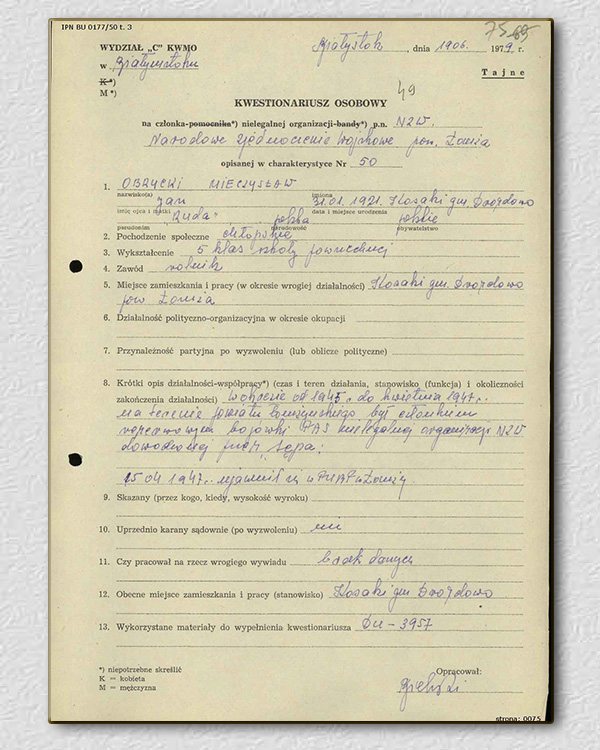 IPN BU 0177/50 t. 3
75 69
WYDZIAŁ „C" KWMO
Białystok, dnia 19 06. 1979 r.
w Białymstoku
K *)
Tajne
M *)
49
KWESTIONARIUSZ OSOBOWY
na członka-pomocnika*) nielegalnej organizacji-bandy*) p.n. NZW.
Narodowe Zjednoczenie Wojskowe pow. Łomża
opisanej w charakterystyce Nr 50
1. OBRYCKI MIECZYSŁAW
nazwisko(a) imiona
Jan 31.01.1921. Kosaki gm. Drozdowo
imię ojca i matki data i miejsce urodzenia
"Ruda" polska polskie
pseudonim narodowość obywatelstwo
2. Pochodzenie społeczne chłopskie
3. Wykształcenie 5 klas szkoły powszechnej
4. Zawód rolnik
5. Miejsce zamieszkania i pracy (w okresie wrogiej działalności) Kosaki gm. Drozdowo
pow. Łomża
6. Działalność polityczno-organizacyjna w okresie okupacji
7. Przynależność partyjna po wyzwoleniu (lub oblicze polityczne)
8. Krótki opis działalności-współpracy*) (czas i teren działania, stanowisko (funkcja) i okoliczności
zakończenia działalności) W okresie od 1945 r. do kwietnia 1947 r.
na terenie powiatu łomżyńskiego był członkiem
bojówki PAS nielegalnej organizacji NZW
dowodzonej przez Sępa.
15 04 1947 r. ujawnił się w PUBP w Łomży
9. Skazany (przez kogo, kiedy, wysokość wyroku)
10. Uprzednio karany sądownie (po wyzwoleniu) nie
11. Czy pracował na rzecz wrogiego wywiadu brak danych
12. Obecne miejsce zamieszkania i pracy (stanowisko) Kosaki gm Drozdowo
13. Wykorzystane materiały do wypełnienia kwestionariusza Du - 3957
*) niepotrzebne skreślić
Opracował:
K = kobieta
M = mężczyzna
strona: 0075